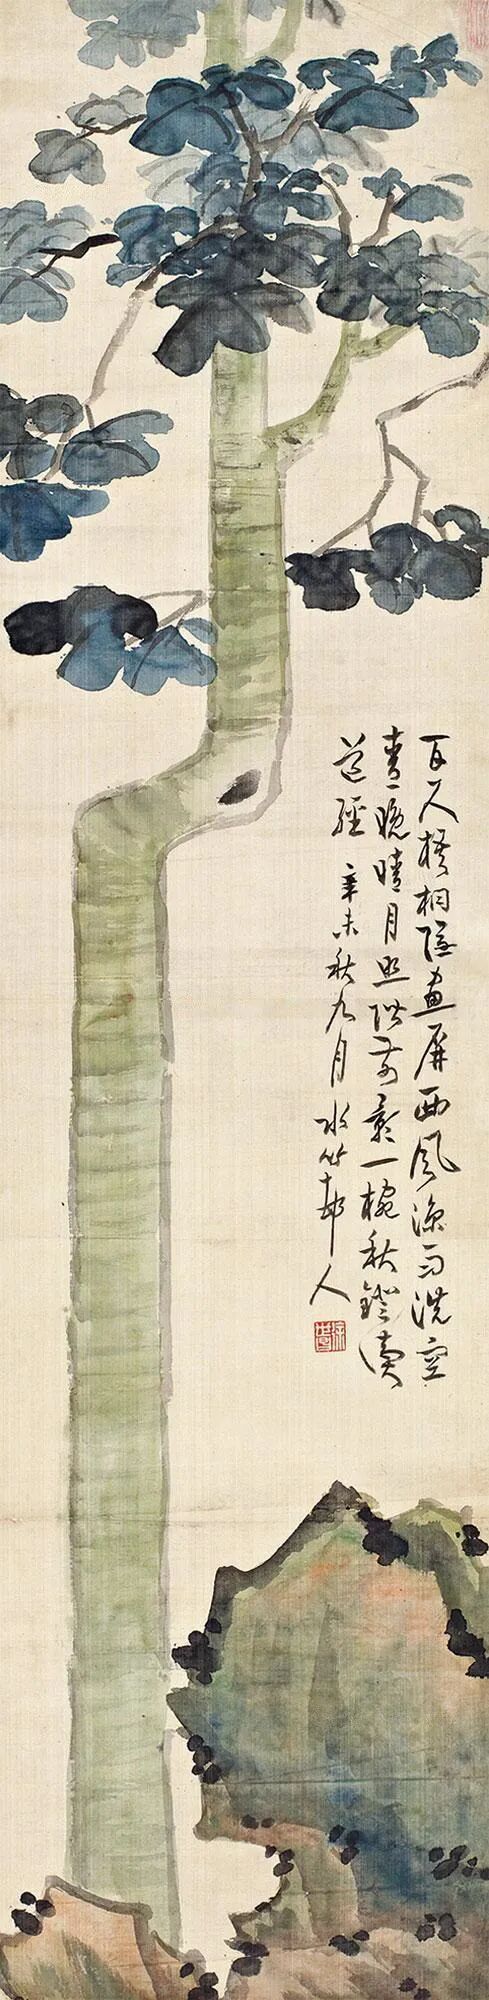 百尺梧桐隱畫屏西風涼雨洗空
青晚晴月照階前影一椀秋鐙讀
道經 辛未秋九月 水竹邨人